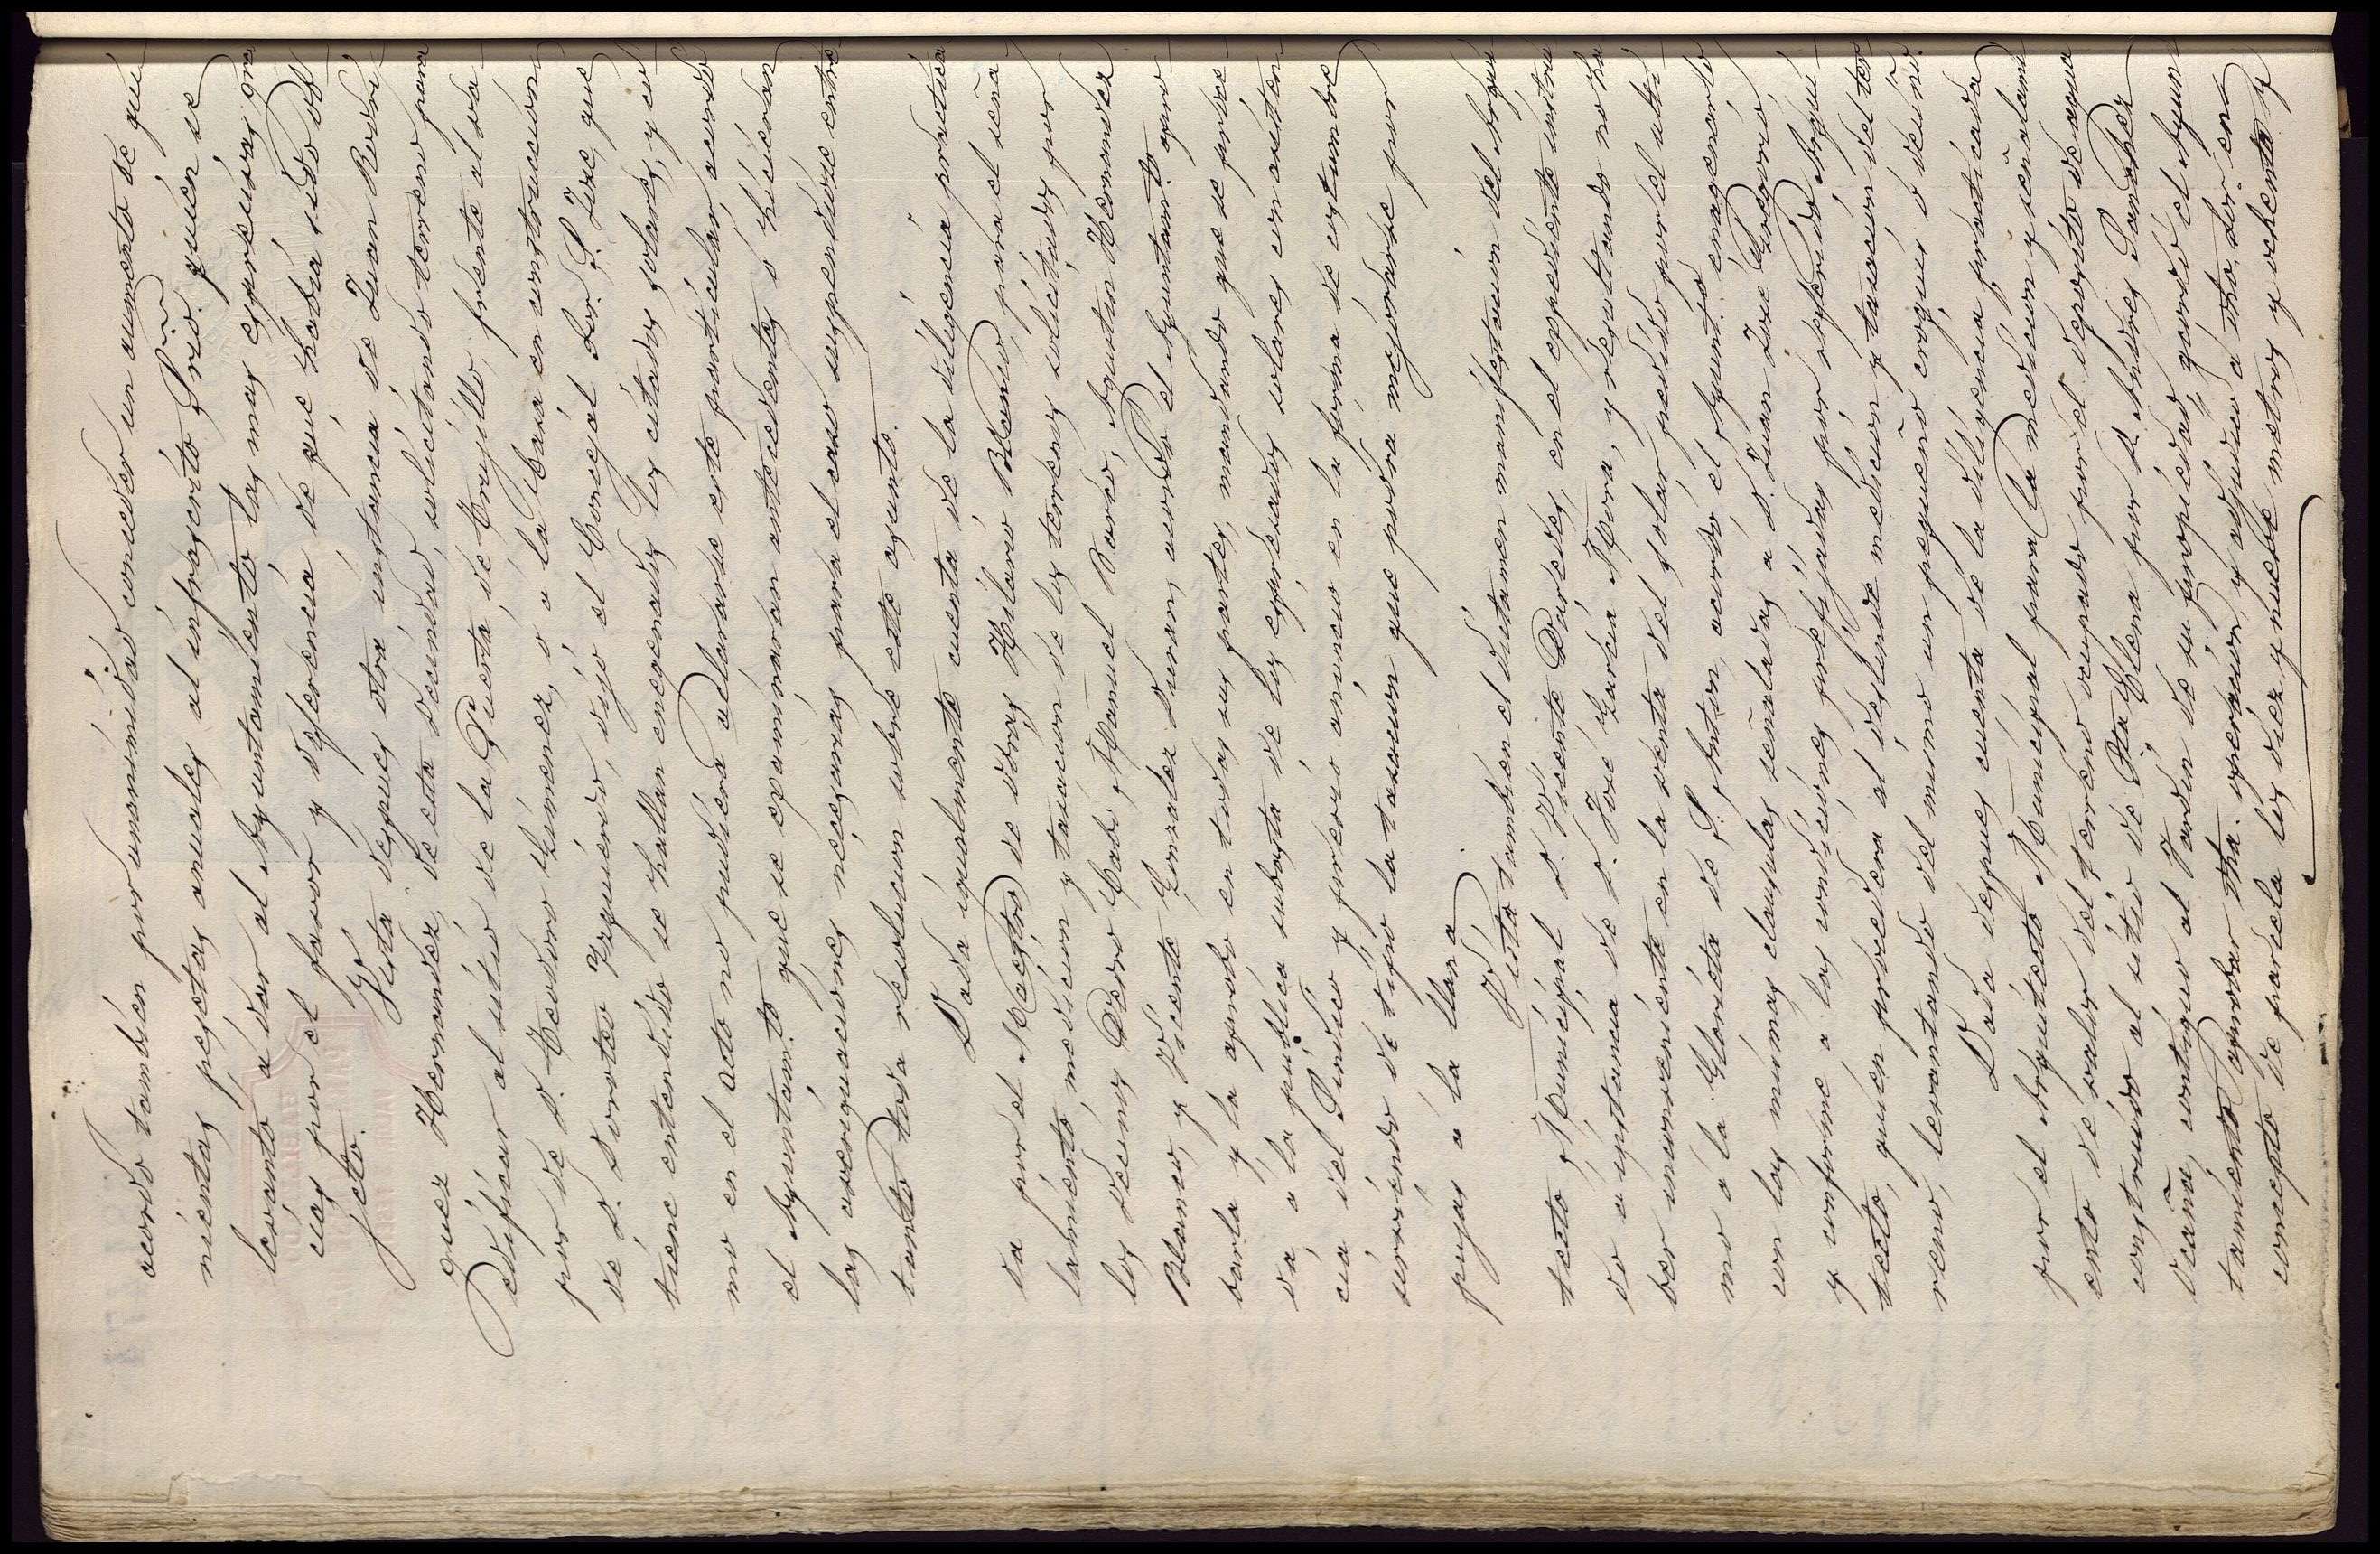 acordo tambien por unanimidad conceder un aumento de qui
nientas pesetas anuales al infrascrito Srio. quien se
levantó a dar al Ayuntamiento las mas espresivas gra
cias por el favor y deferencia de que habia sido ob
jeto.
Vista despues otra instancia de Juan Rodri
guez Hernandez, de esta vecindad, solicitando terreno para
edificar al sitio de la Puerta de Trujillo, frente al so
por de D. Teodoro Gimenez, o a la Casa en construccion
de D. Doroteo Yzquierdo, dijo el Concejal Sor. S. Jose, que
tiene entendido se hallan enagenados los citados solares, y co
mo en el acto no pudiera aclararse este particular, acordó
el Ayuntam.to que se examinaran antecedentes o hicieran
las averiguaciones necesarias para el caso suspendiose entre
tanto toda resolucion sobre este asunto.
Dada igualmente cuenta de la diligencia practica
da por el Maestro de obras Hilario Blanco, para el seña
lamiento, medicion y tasacion de los terrenos solicitados por
los vecinos Pedro Cabo, Manuel Barco, Agustin Hernandez
Blanco, y Vicente Gonzalez Duran, acordó el Ayuntam.to apro
barla y la aprobó en todas sus partes, mandando que se proce
da, a la pública subasta de los espresados solares con asisten
cia del Sindico y previo anuncio en la forma de costumbre
sirviendo de tipo la tasacion que podra mejorarse por
pujas a la llana.
Visto tambien el dictamen manifestacion del Arqui
tecto Municipal D. Vicente Paredes, en el espediente instrui
do a instancia de D. José Garcia Mora, y resultando no ha
ber inconveniente en la venta del solar pedido por el ulti
mo a la Glorieta de S. Anton, acordó el Ayunt.to enagenarlo
con las mismas clausulas señaladas a D. Juan José Gregorio,
y conforme a las condiciones prefijadas por referido Arqui
tecto, quien procedera al deslinde medicion y tasacion del ter
reno, levantando del mismo un pequeño croquis o diseño.
Dada despues cuenta de la diligencia practicada
por el Arquitecto Municipal para la medicion y señalami
ento de valor del terreno ocupado por el deposito de agua
construido al sitio de Sta Elena por D. Andres Sanchez
Ocaña, contiguo al Jardin de su propiedad, acordó el Ayun
tamiento aprobar dha. operacion, y adjudicó a dho. Sor. en
concepto de parcela los diez y nueve metros y ochenta y